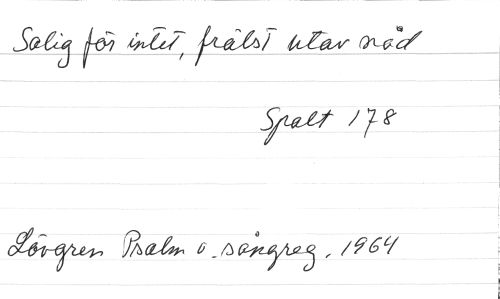 Salig för intet, frälst utav nåd
Spalt 178
Lövgren Psalm o. sångreg. 1964